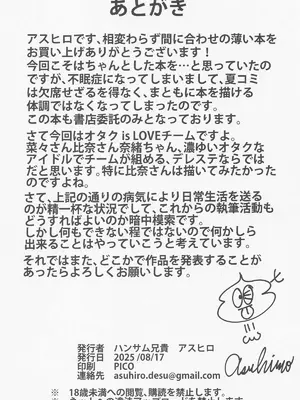 あとがき
アスヒロです、相変わらず間に合わせの薄い本を
お買い上げありがとうございます！
今回こそはちゃんとした本を…と思っていたの
ですが、不眠症になってしまいまして、夏コミ
は欠席せざるを得なく、まともに本を描ける
体調ではなくなってしまったのです。
この本も書店委託のみとなっております。
さて今回はオタク is LOVEチームですよ。
菜々さん比奈さん奈緒ちゃん、濃ゆいオタクな
アイドルでチームが組める、デレステならでは
だと思います。特に比奈さんは描いてみたかった
のですよね。
さて、上記の通りの病気により日常生活を送る
のが精一杯な状況でして、これからの執筆活動も
どうすればよいのか暗中模索です。
しかし何もできない程ではないので何かしら
出来ることはやっていこうと考えています。
それではまた、どこかで作品を発表することが
あったらよろしくお願いします。
asuhiro
発行者 ハンサム兄貴 アスヒロ
発行日 2025/08/17
印刷 PICO
連絡先 asuhiro.desu@gmail.com
※ 18歳未満への閲覧、購読を禁止します。